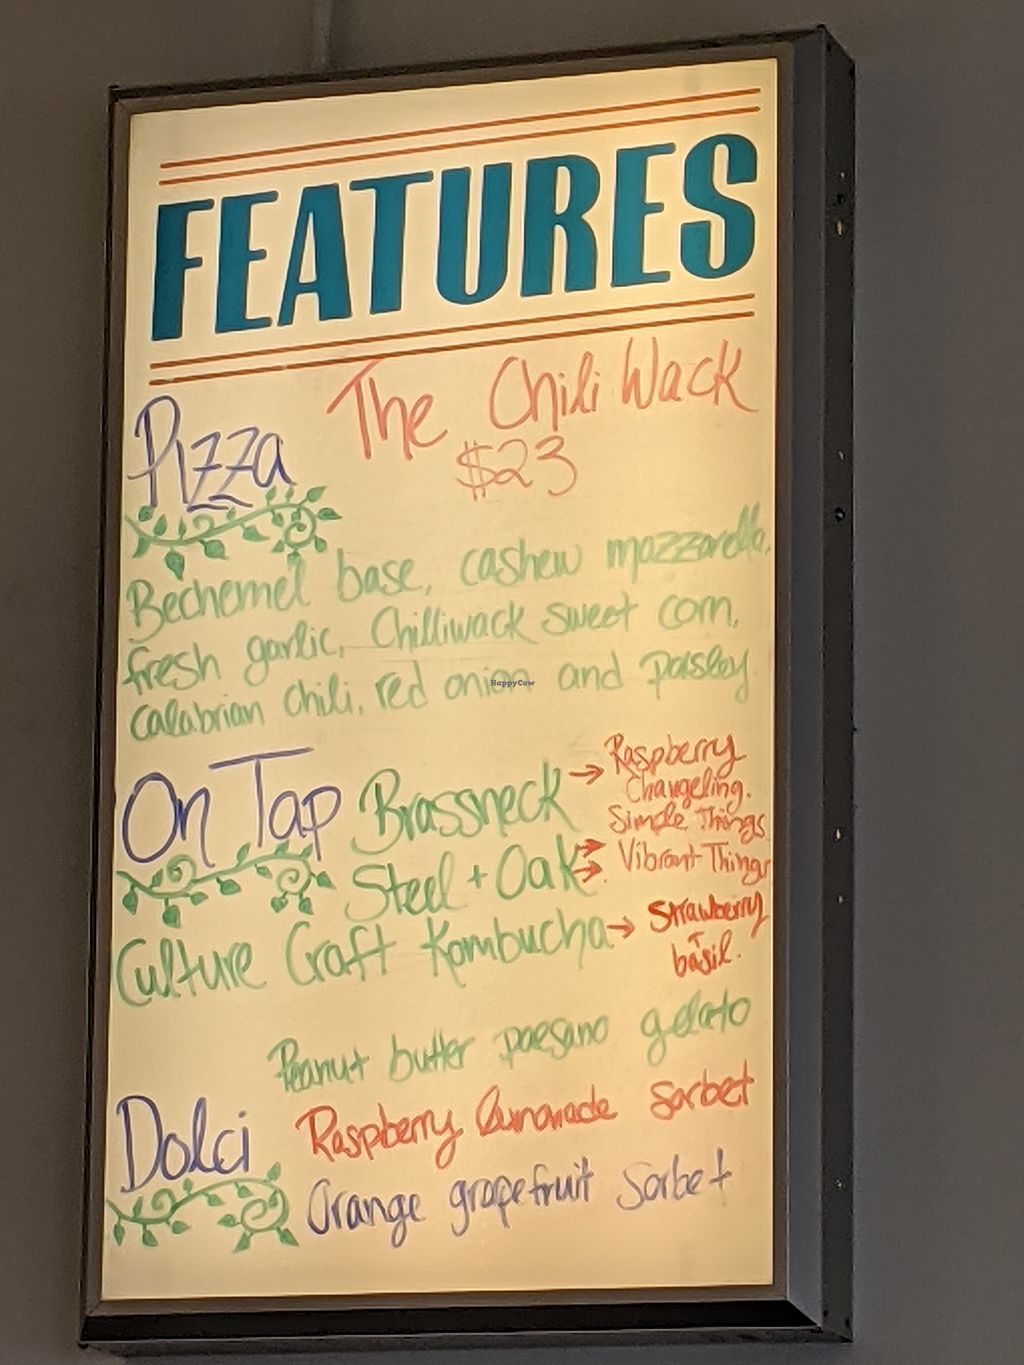 FEATURES
Pizza
The Chili Wack
$23
Bechemel base, cashew mozzarella,
fresh garlic, Chilliwack sweet corn,
Calabrian chili, red onion and parsley
HappyCow
On Tap
Brassneck → Raspberry
Changeling.
Simple Things
Steel + Oak → Vibrant Things
Culture Craft Kombucha → Strawberry
+
basil.
Dolci
Peanut butter paesano gelato
Raspberry lemonade sorbet
Orange grapefruit sorbet